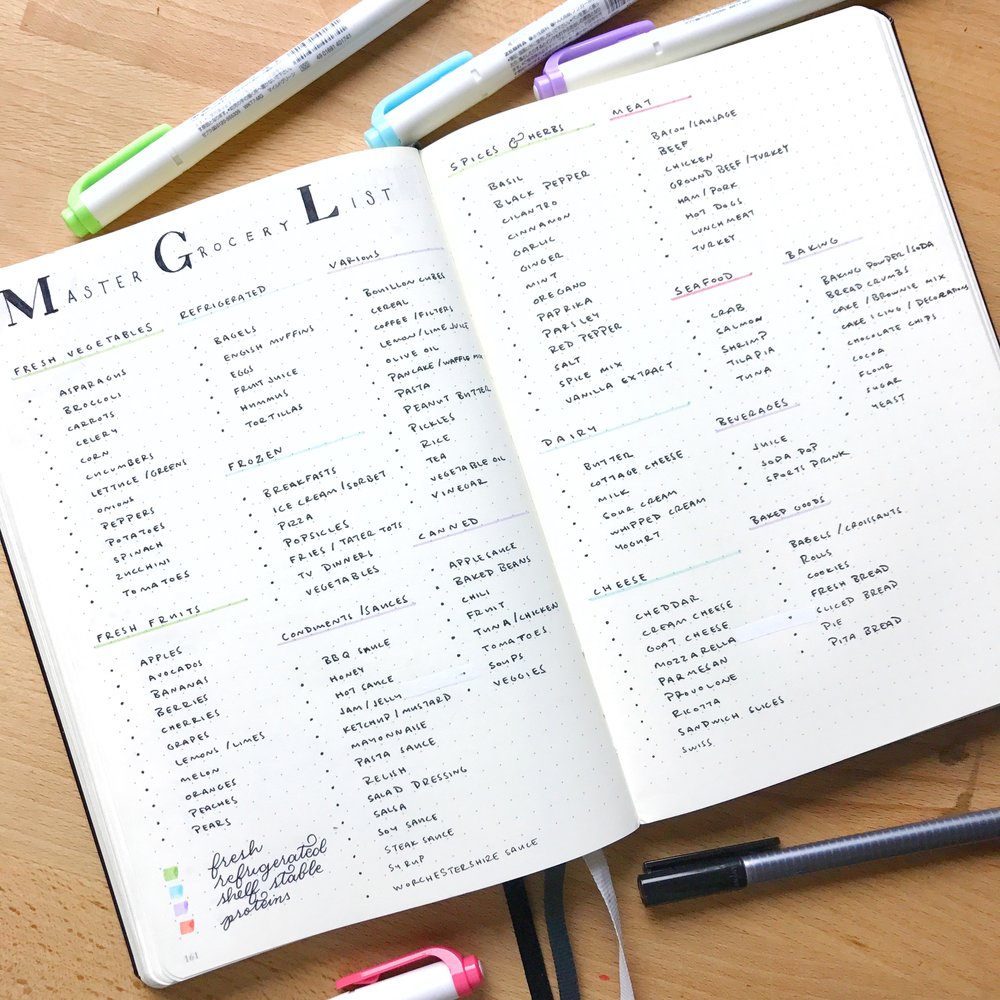 MASTER GROCERY LIST
FRESH VEGETABLES
ASPARAGUS
BROCCOLI
CARROTS
CELERY
CORN
CUCUMBERS
LETTUCE/GREENS
ONIONS
PEPPERS
POTATOES
SPINACH
ZUCCHINI
TOMATOES
FRESH FRUITS
APPLES
AVOCADOS
BANANAS
BERRIES
CHERRIES
GRAPES
LEMONS/LIMES
MELON
ORANGES
PEACHES
PEARS
fresh
refrigerated
shelf stable
proteins
161
REFRIGERATED
BAGELS
ENGISH MUFFINS
EGGS
FRUIT JUICE
HUMMUS
TORTILLAS
FROZEN
BREAKFASTS
ICE CREAM/SORBET
PIZZA
POPSICLES
FRIES/TATER TOTS
TV DINNERS
VEGETABLES
CONDIMENTS/SAUCES
BBQ SAUCE
HONEY
HOT SAUCE
JAM/JELLY
KETCHUP/MUSTARD
MAYONNAISE
PASTA SAUCE
RELISH
SALAD DRESSING
SALSA
SOY SAUCE
STEAK SAUCE
SYRUP
WORCHESTERSHIRE SAUCE
VARIOUS
BOUILLON CUBES
CEREAL
COFFEE/FILTERS
LEMON/LIME JUICE
OLIVE OIL
PANCAKE/WAFFLE MIX
PASTA
PEANUT BUTTER
PICKLES
RICE
TEA
VEGETABLE OIL
VINEGAR
CANNED
APPLESAUCE
BAKED BEANS
CHILI
FRUIT
TUNA/CHICKEN
TOMATOES
SOUPS
VEGGIES
SPICES & HERBS
BASIL
BLACK PEPPER
CILANTRO
CINNAMON
GARLIC
GINGER
MINT
OREGANO
PAPRIKA
PARSLEY
RED PEPPER
SALT
SPICE MIX
VANILLA EXTRACT
DAIRY
BUTTER
COTTAGE CHEESE
MILK
SOUR CREAM
WHIPPED CREAM
YOGURT
CHEESE
CHEDDAR
CREAM CHEESE
GOAT CHEESE
MOZZARELLA
PARMESAN
PROVOLONE
RICOTTA
SANDWICH SLICES
SWISS
MEAT
BACON/SAUSAGE
BEEF
CHICKEN
GROUND BEEF/TURKEY
HAM/PORK
HOT DOGS
LUNCHMEAT
TURKEY
SEAFOOD
CRAB
SALMON
SHRIMP
TILAPIA
TUNA
BEVERAGES
JUICE
SODA POP
SPORTS DRINK
BAKED GOODS
BABELS/CROISSANTS
ROLLS
COOKIES
FRESH BREAD
SLICED BREAD
PIE
PITA BREAD
BAKING
BAKING POWDER/SODA
BREAD CRUMBS
CAKE/BROWNIE MIX
CAKE ICING/DECORATIONS
CHOCOLATE CHIPS
COCOA
FLOUR
SUGAR
YEAST